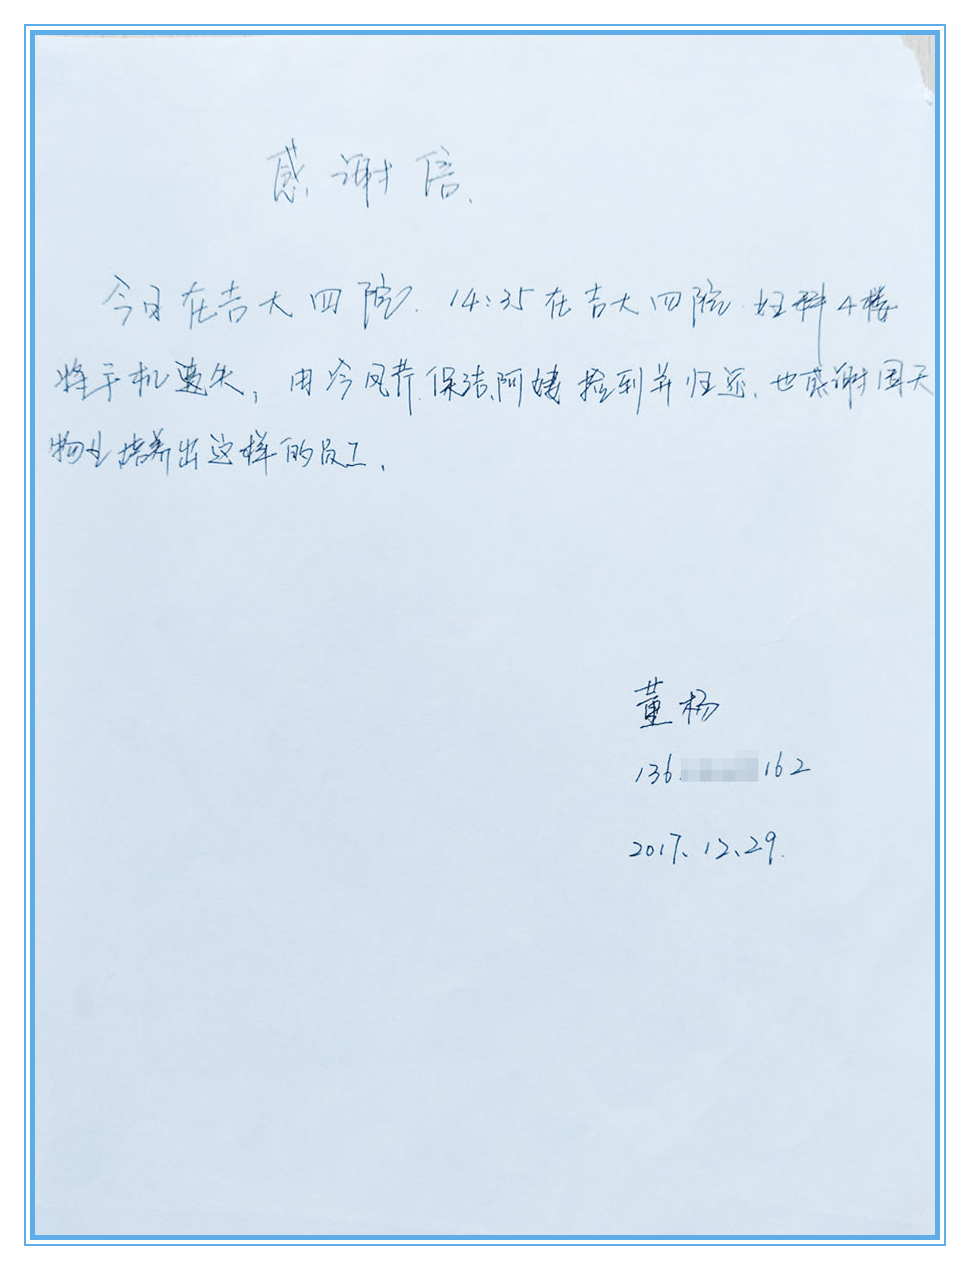 感谢信.
今日在吉大四院. 14:35在吉大四院 妇科4楼
将手机遗失, 由冷凤芹.保洁阿姨捡到并归还.也感谢周天
物业培养出这样的员工.
董杨
136 162
2017.12.29.